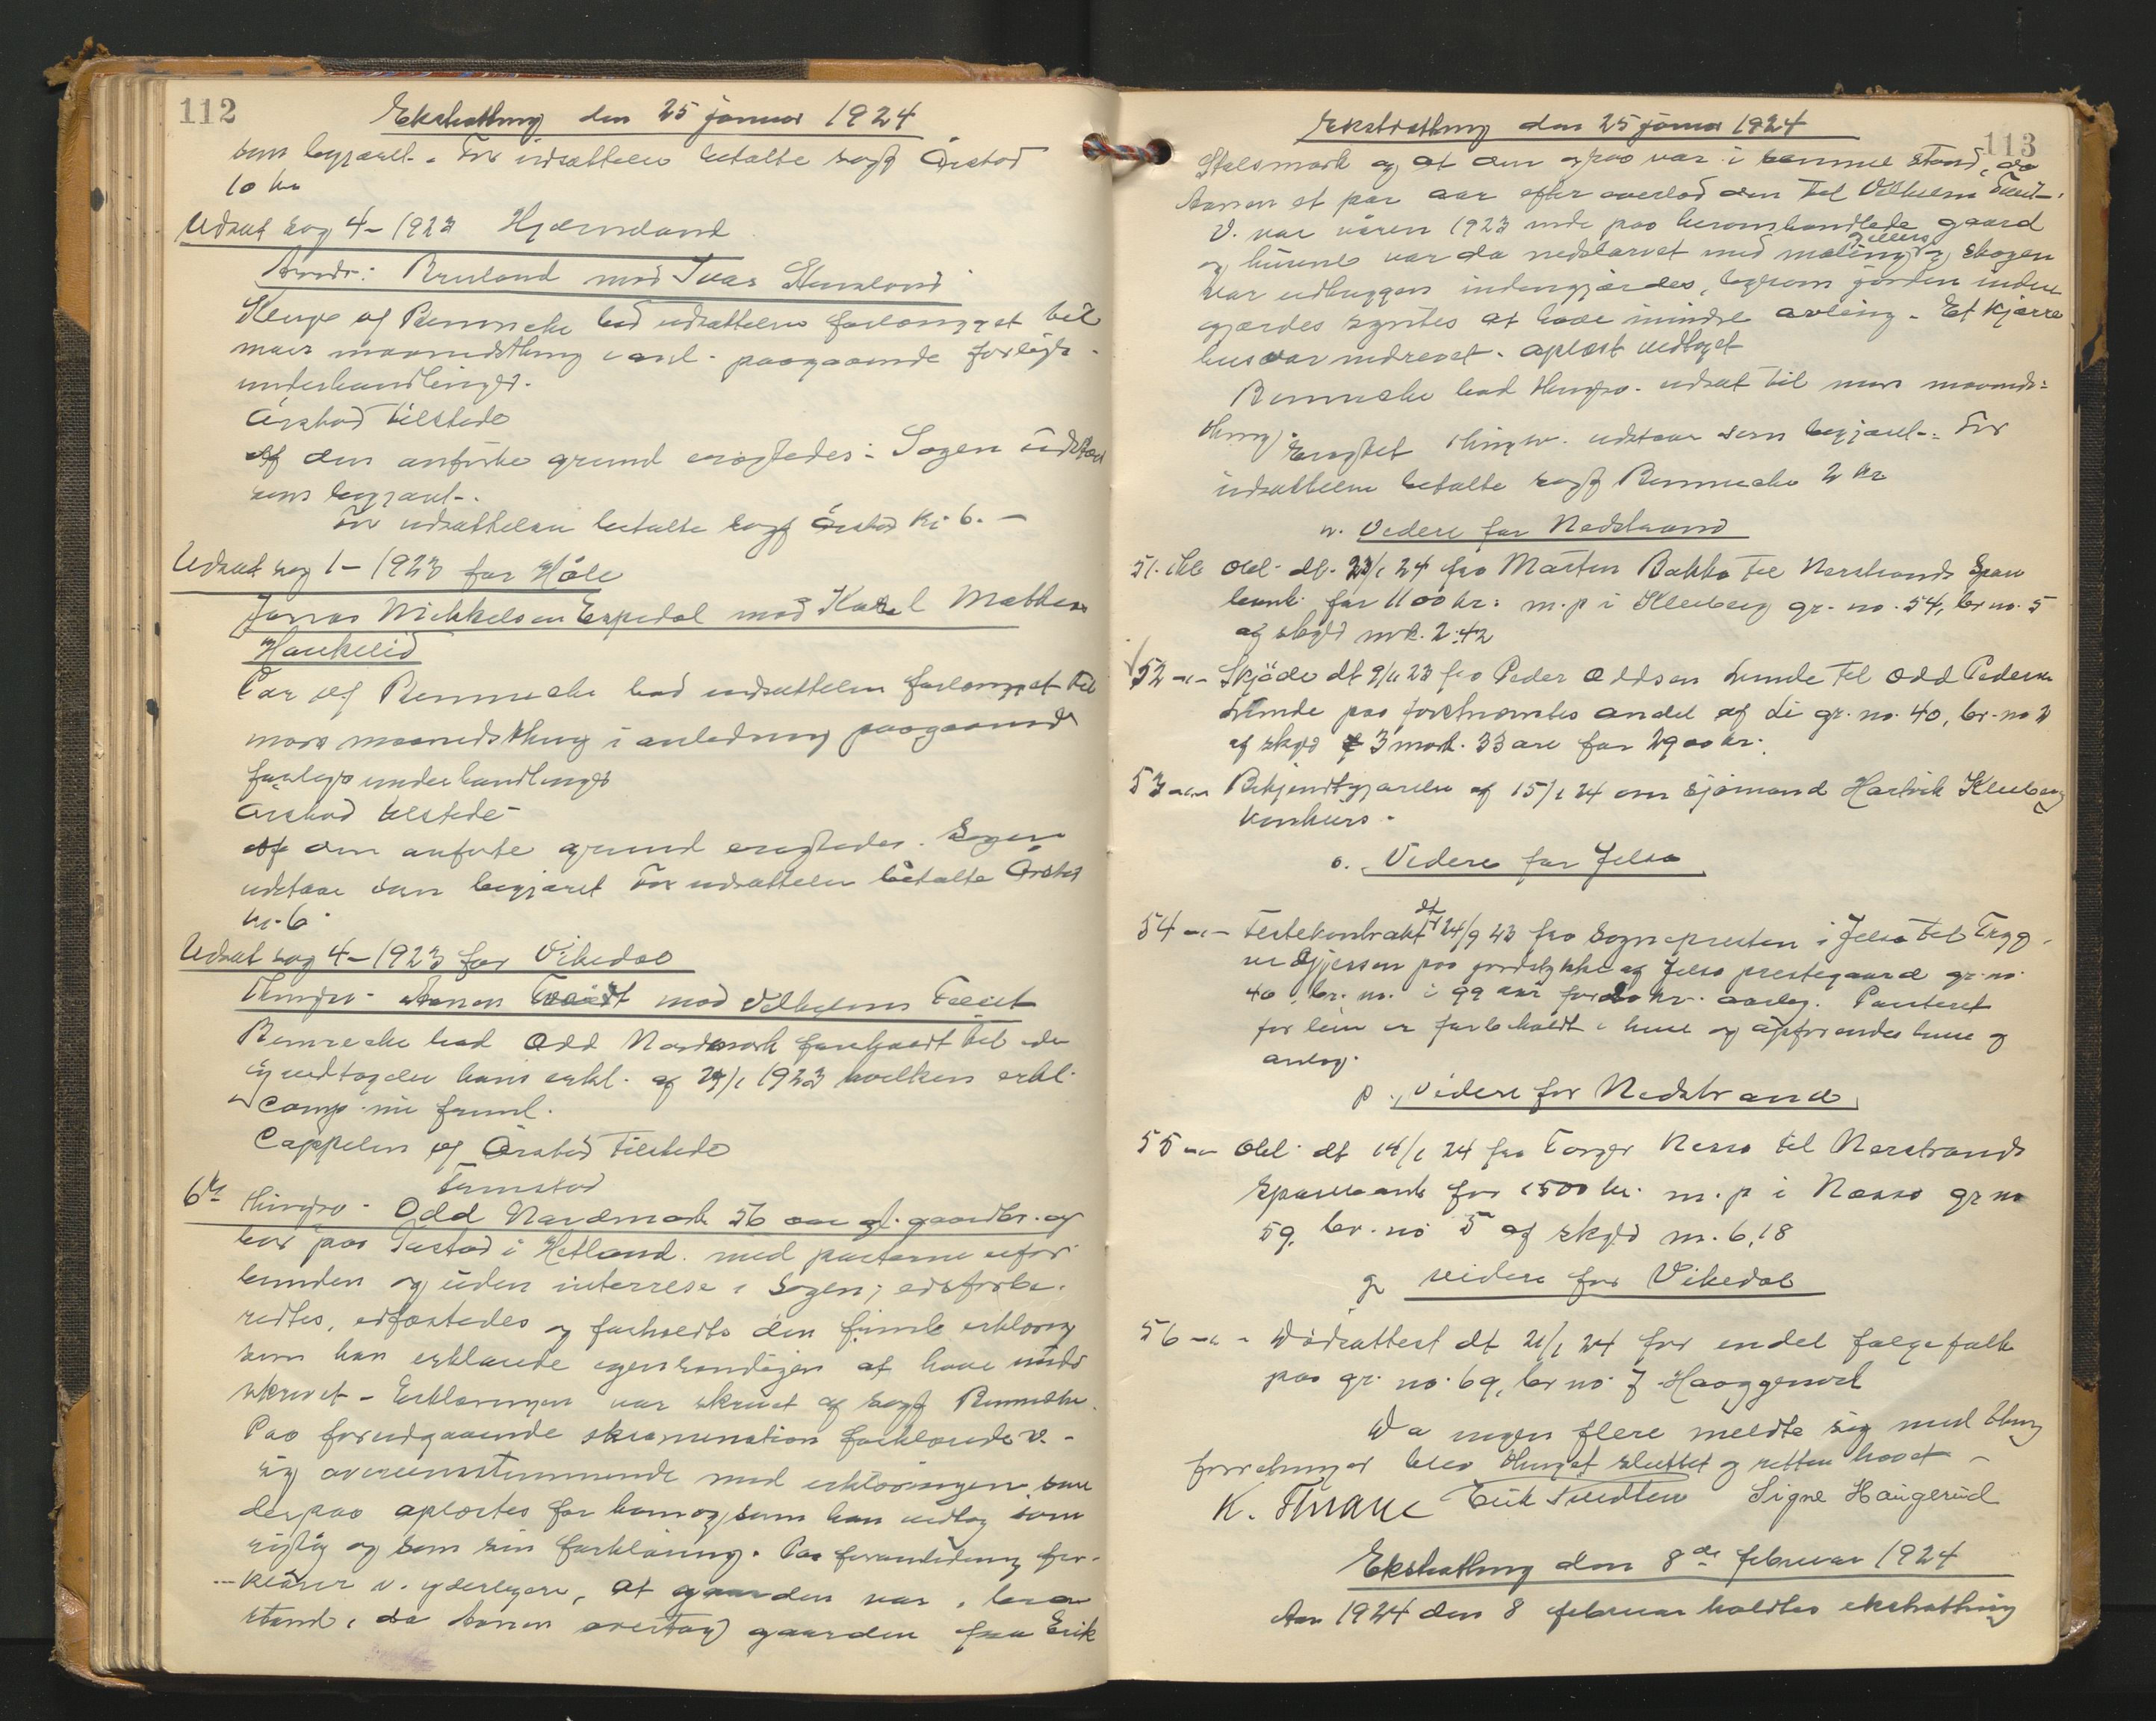 112
Ekstrathing den 25 januar 1924
som begjæret. For udsættelsen betalte sagf Årstad
10 kr
Udsat sag 4 - 1923 Hjelmeland
Bruland mod Ivar Stensland
af Bennecke bad udsættelsen forlænget til
maanedsthing i anl. paagaaende forligs-
underhandlinger.
Årstad tilstede
Af den anførte grund eragtedes: Sagen udstaar
som begjæret.
For udsættelsen betalte sagf Årstad kr. 6. -
Udsat sag 1 - 1923 for Høle
Jonas Mikkelsen Espedal mod Karl Mathias
Haukelid
For Bennecke bad udsættelsen forlænget til
maanedsthing i anledning paagaaende
forligsunderhandlinger
Årstad tilstede
Af den anførte grund eragtedes. Sagen
udstaar som begjæret For udsættelsen betalte Årstad
kr. 6.
Udsat sag 4 - 1923 for Vikedal
Aanen Tveidt mod Vilhelm Tveit
Bennecke bad Odd Nordmark foreholdt til
vedtagelse hans erkl. af 1923 hvilken erkl.
Cappelen og Årstad tilstede
Tunstad
6te Odd Nordmark 56 aar gl. gaardbr. og
bor paa Tastad i Hetland. med parterne ufor-
bunden og uden interesse i Sagen; edsforbe-
redtes, edfæstedes og foreholdtes den freml. erklæring
som han erklærede egenhændigen at have under-
skrevet - Erklæringen var skrevet af sagf Bennecke.
Paa forudgaaende eksamination forklarede v.
sig overensstemmende med erklæringen, som
derpaa oplæstes for ham og som han vedtog som
rigtig og som sin forklaring. Paa foranledning for-
klarer v. yderligere, at gaarden var i bra
stand, da Aanen overtog gaarden fra Erik
113
Ekstrathing den 25 januar 1924
Stølsmark og at den ogsaa var i samme stand, da
Aanen et par aar efter overlod den til Vilhelm Tveit.
V. var våren 1923 inde paa heromhandlede gaard
og husene var da nedslarvet med maling og skogen
var udhuggen indengjærdes, ligesom jorden inden-
gjærdes syntes at have mindre avling. Et kjærre
hus var nedrevet. Oplæst vedtaget
Bennecke bad thingsv. udsat til maaneds-
thing.
Eragtet udstaar som begjæret. For
udsættelsen betalte sagf Bennecke 2 kr
n. Videre for Nedstrand
51. Obl. dt. 23/1 24 fra Marten Bakka til Nerstrands Spare
bank for 1100 kr. m. p i Kleiberg gr. no. 54, br no. 5
af skyld mrk. 2.42
52 -"- Skjøde dt 9/11 23 fra Peder Oddsen Lunde til Odd Pedersen
Lunde paa førstnævntes andel af Li gr. no. 40, br. no 2
af skyld 3 mark 33 øre for 2900 kr.
53 -"- Bekjendtgjørelse af 15/1 24 om sjømand Hartvik Kleiberg
konkurs.
o. Videre for Jelsa
54 -"- Festekontrakt dt 24/9 23 fra Sognepresten i Jelsa til Trygg-
paa jordstykke af Jelsa prestegaard gr. no.
40, br. no. i 99 aar for kr. aarlig. Panteret
for leien er forbeholdt i huse og opførendes huse og
anlæg.
p. Videre for Nedstrand
55 -"- Obl. dt 14/1 24 fra Torger Nessa til Nerstrands
Sparebank for 1500 kr. m. p i Næssa gr no
59, br. no 5 af skyld m. 6,18
q videre for Vikedal
56 -"- Dødsattest dt 21/1 24 for endel følgefolk
paa gr. no. 69, br no 7
Da ingen flere meldte sig med thing
forretninger blev thinget sluttet og retten hævet -
K. Thrane Erik Tveidten Signe Haugerud
Ekstrathing den 8de februar 1924
Aar 1924 den 8 februar holdtes ekstrathing